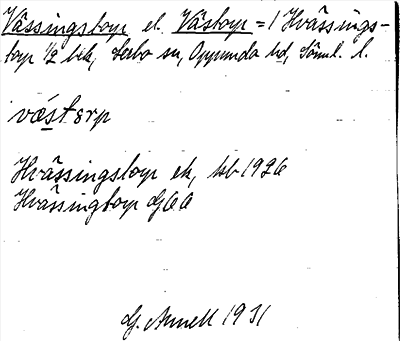 Vässingstorp el. Västorp = 1 Hvässings-
torp 1/2 bek, Lerbo sn, Oppunda hd, Söml. l.
västerp
Hvässingstorp ek, 1926
Hvässingtorp GGA
G. Annell 1931